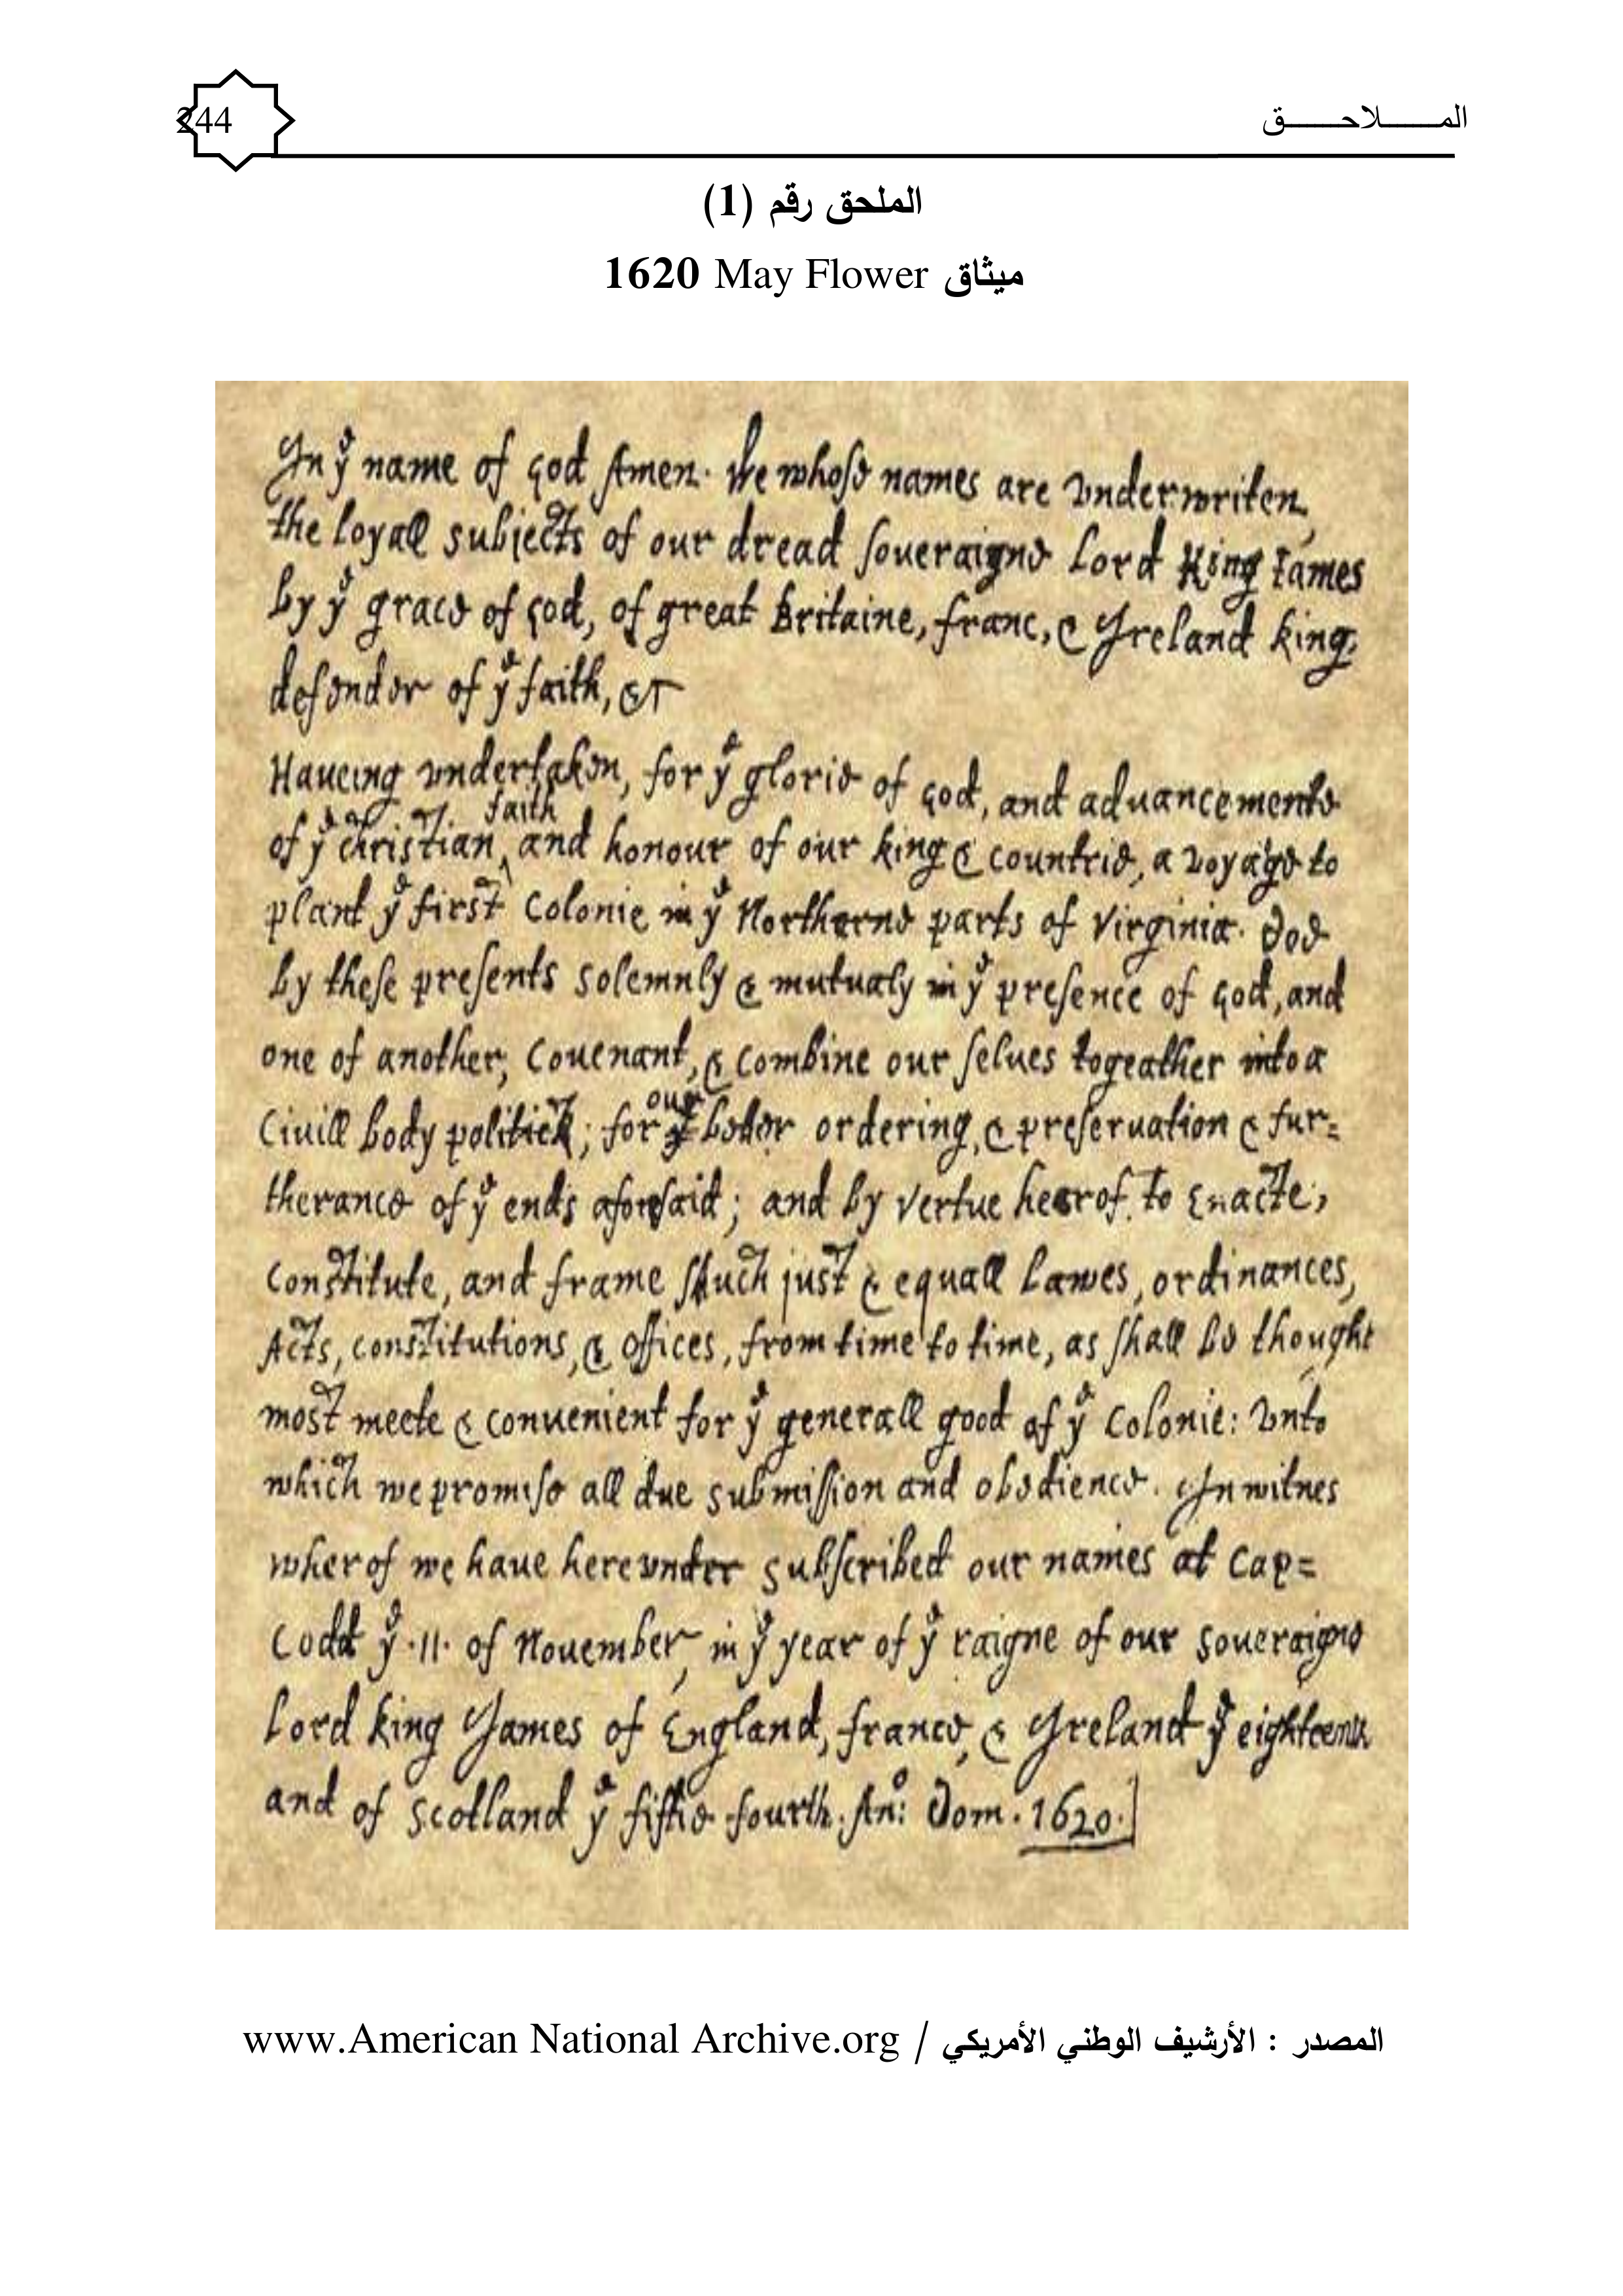 244
المـــــــلاحـــــــق
الملحق رقم (1)
ميثاق May Flower 1620
In yͤ name of god Amen. We whose names are vnderwriten,
the loyall subjects of our dread soueraigne Lord King Iames
by yͤ grace of god, of great Britaine, franc, & Ireland king,
defender of yͤ faith, &c
Haueing vndertaken, for yͤ glorie of god, and aduancemente
of yͤ christian faith and honour of our king & countrie, a voyage to
plant yͤ first Colonie in yͤ Northerne parts of Virginia. Doe
by these presents solemnly & mutualy in yͤ presence of god, and
one of another, Couenant, & Combine our selues togeather into a
Ciuill body politick; for our beter ordering, & preseruation & fur=
therance of yͤ ends aforesaid; and by vertue hearof to Enacte,
Constitute, and frame shuch just & equall Lawes, ordinances,
Acts, constitutions, & offices, from time to time, as shall be thought
most meete & conuenient for yͤ generall good of yͤ Colonie: vnto
which we promise all due submission and obedience. In witnes
wherof we haue herevnder subscribed our names at Cap=
Codd yͤ ·11· of Nouember, in yͤ year of yͤ raigne of our soueraigne
Lord king James of England, france, & Ireland yͤ eighteenth
and of scotland yͤ fiftie fourth. Anͦ: Dom. 1620.]
المصدر : الأرشيف الوطني الأمريكي / www.American National Archive.org